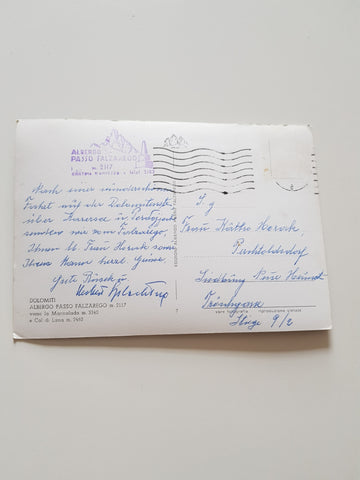 ALBERGO
PASSO FALZAREGO
m. 2117
Nach einer wunderschönen
Fahrt auf der Dolomitenstr.
über Karersee u. Pordoijoch
senden wir vom Falzarego,
Ihnen u. Frau Horak sowie
Ihrem Manne herzl. Grüsse.
Gute
DOLOMITI
ALBERGO PASSO FALZAREGO m. 2117
verso la Marmolada m. 3342
e Col di Lana m. 2462
S. g.
Frau Käthe Horak,
Perchtoldsdorf
Siedlung Neue Heimat
Stiege 9/2
vera fotografia riproduzione vietata